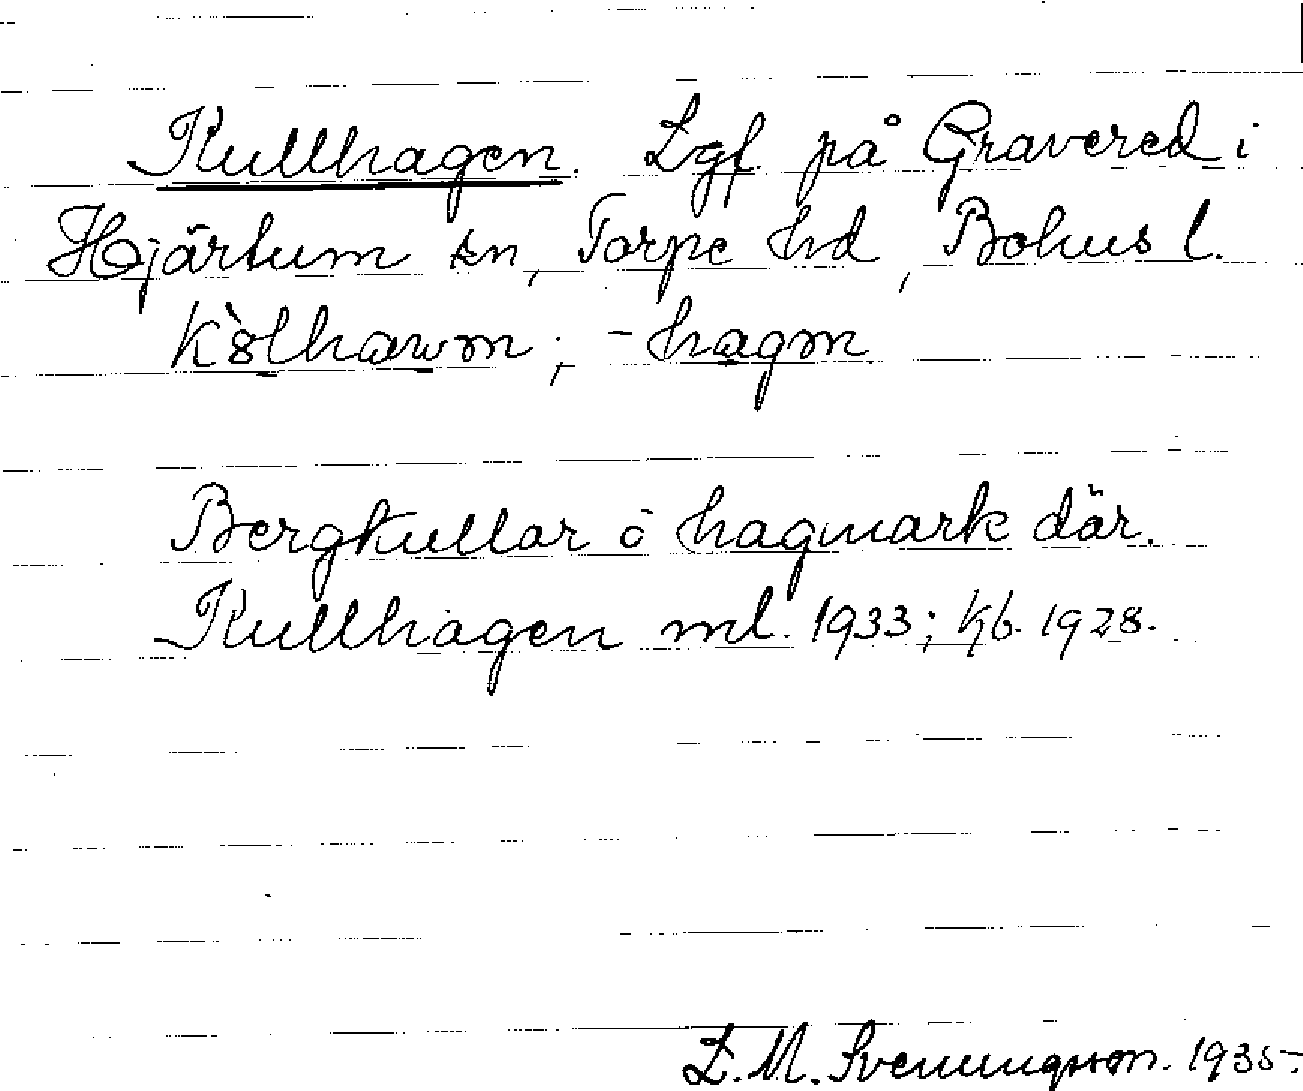 Kullhagen. Lgf på Gravered i
Hjärtum sn, Torpe hd, Bohus l.
k`ɞlhawm; -hagm
Bergkullar o hagmark där.
Kullhagen ml. 1933; Kb. 1928.
L. M. Svenungsson. 1935.